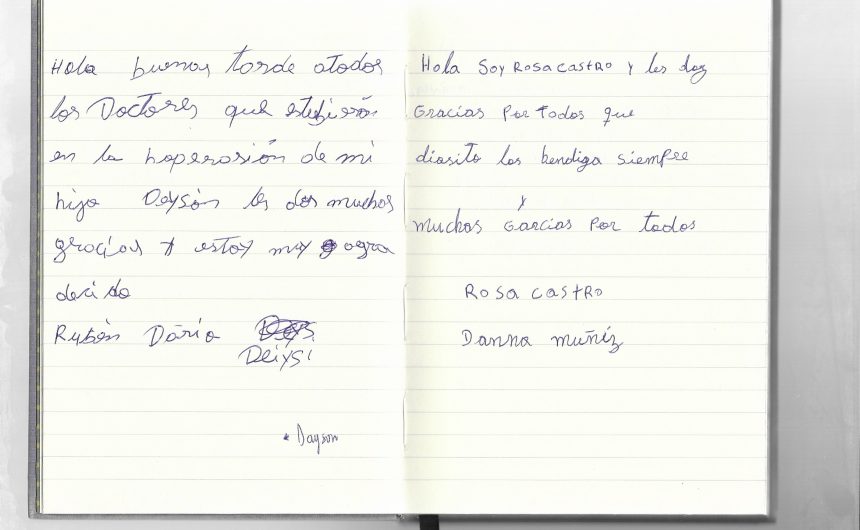 Hola buenas tarde atodos
los Doctores que estubierón
en la hoperasión de mi
hijo Deysón les dos muchas
gracias y estoy muy agra
decido
Rubén Dário
Deiysi
* Dayson
Hola Soy ROSA CASTRO y les doy
Gracias Por todos que
diosito los bendiga siempre
y
muchas Garcias Por todos
ROSA CASTRO
Danna muñiz